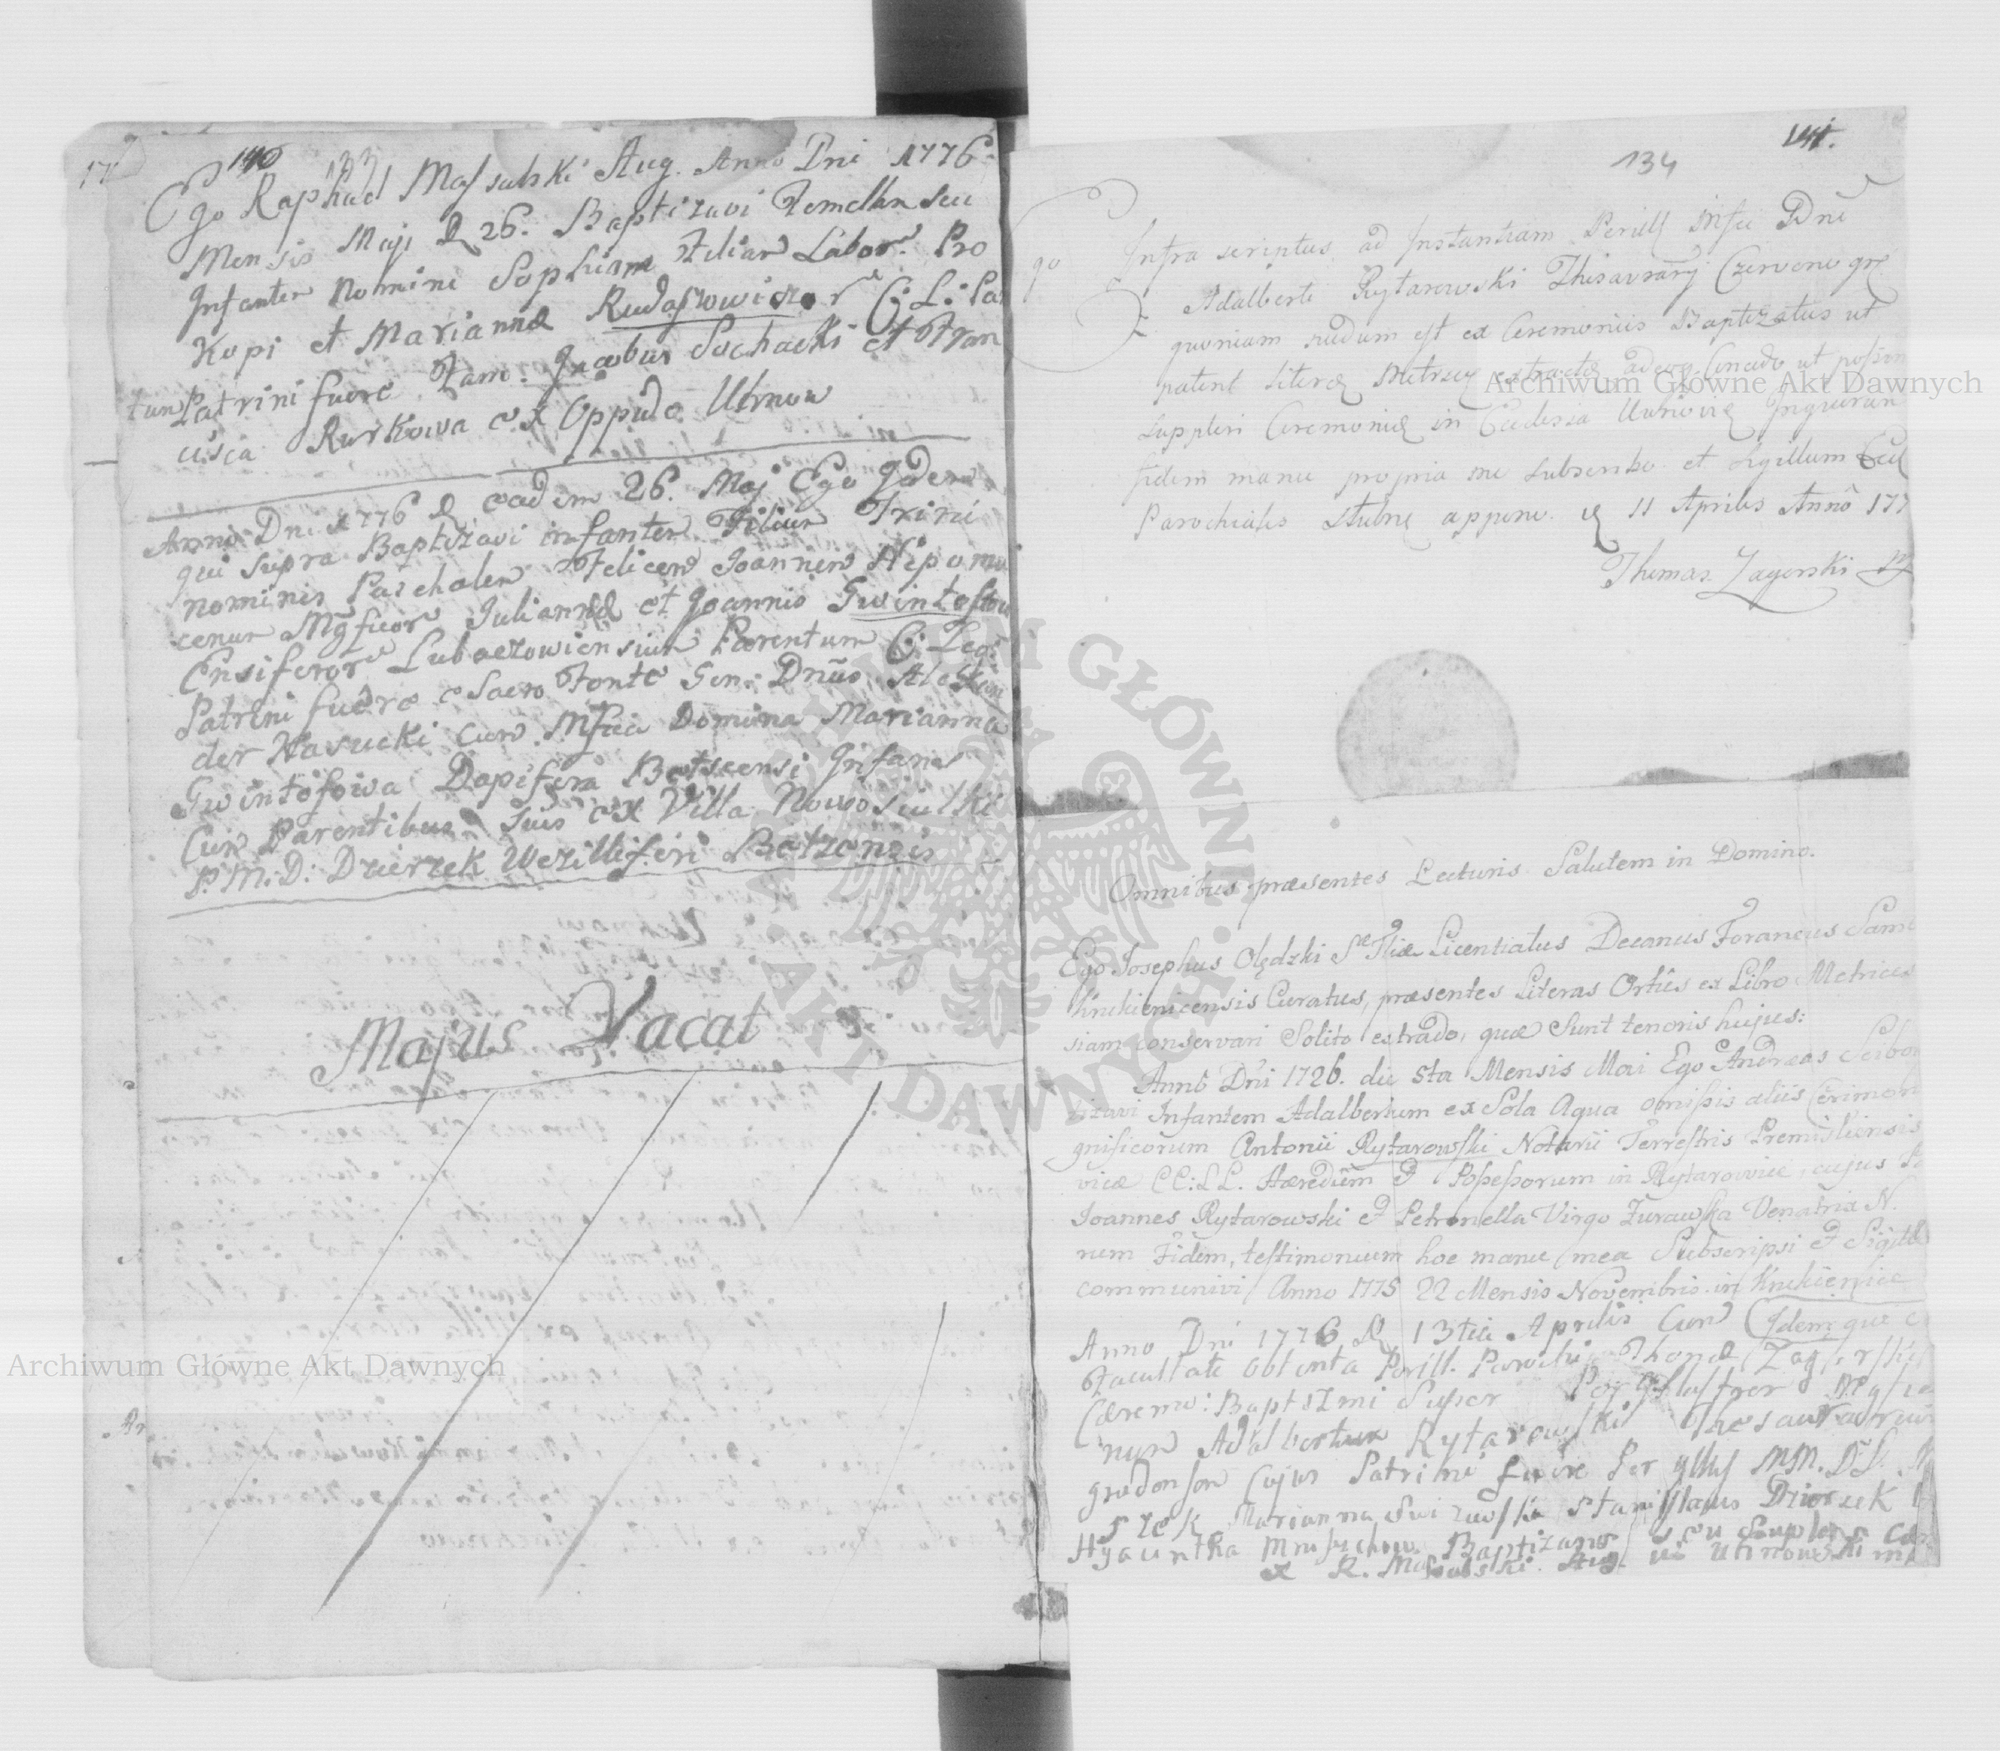 140
133
Ego Raphael Massalski Aug. Anno Dni 1776
Mensis Maji d 26. Baptizavi Femellam seu
Infantem Nomine Sophiam Filiam Labor. Pro
Kopi et Mariannæ Rudaszowicz C: L: Pa
Patrini fuere Fam. Jacobus Sochacki et Fran
cisca Rurkowa ex Oppido Uhnow
Anno Dni 1776 d eadem 26. Maj Ego Idem
qui supra Baptizavi infantem Filium Trini
nominis Paschalem Felicem Joannem Nipomu
cenum Mgficor Juliannæ et Joannis Gwintoftow
Ensiferor Lubaczowiensium Parentum C: Leg:
Patrini fuere e Sacro Fonte Gen: Dnus Alexan
der Nasucki cum Mfica Domina Marianna
Gwintofowa Dapifera Betscensi Infans
Cum Parentibus suis ex Villa Nowosiulki
P. M. D: Dzierzek Wexilliferi Betzensis
Majus Vacat
141.
134
Ego Infra scriptus ad Instantiam Perill Mfci Dni
Adalberti Rytarowski Thesaurarij Czerwonogr
quoniam nudum est ex Ceremoniis Baptizatus ut
patent literæ Metrices extractæ
suppleri Ceremoniæ in Ecclesia
fidem manu propria me subscribo et Sigillum Eccl
Parochialis appono d 11 Aprilis Anno 177
Thomas Zagorski
Omnibus præsentes Lecturis Salutem in Domino.
Ego Josephus Olędzki S. Thiæ Licentiatus Decanus Foraneus Samb
Krukienicensis Curatus, præsentes Literas Ortûs ex Libro Metrices
siam conservari Solito extrado, quæ Sunt tenoris hujus:
Anno Dni 1726. die 5ta Mensis Mai Ego Andreas Scibor
tizavi Infantem Adalbertum ex Sola Aqua omissis aliis Cerimon
gnificorum Antonii Rytarowski Notarii Terrestris Premisliensis
vicæ CC: LL. Hæredum et Possessorum in Rytarowice, cujus P
Joannes Rytarowski et Petronella Virgo Zurawska Venatrix N.
rum Fidem, testimonium hoc manu mea Subscripsi et Sigill
communivi Anno 1775 22 Mensis Novembris in Krukienice
Anno Dni 1776 d 13tia Aprilis Cum Idem que
Facultate obtenta Perill. Parochi Thomæ Zagorski
Cærem: Baptszmi Super Per Illustrem Mgfic
num Adalbertum Rytarowski Thesaurarium
grudonsem Cujus Patrini fuere Per Illus MM. DD.
szek Marianna Swizawska Stanislaus Dzierzek
Hyacintha Baptizans seu Suplens Cær
R. Massalski Aug. in Uhnow